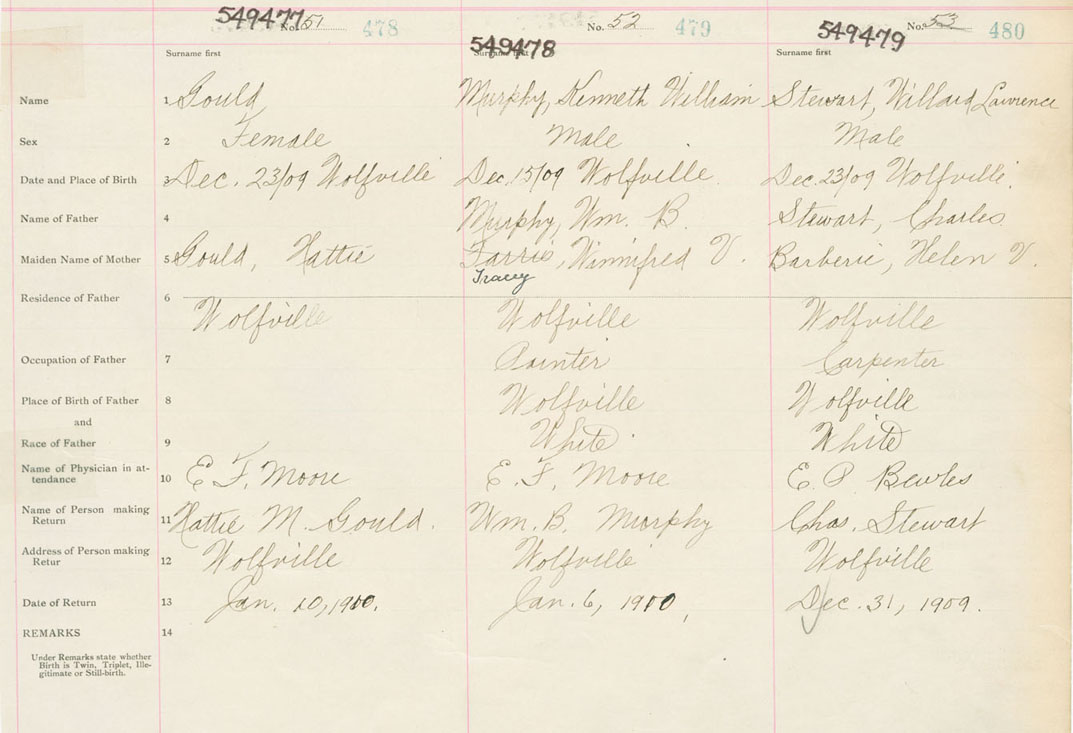 549477 No. 51 478 549478 No. 52 479 549479 No. 53 480
Surname first Surname first Surname first
Name 1 Gould Murphy, Kenneth William Stewart, Willard Lawrence
Sex 2 Female Male Male
Date and Place of Birth 3 Dec. 23/09 Wolfville Dec. 15/09 Wolfville. Dec. 23/09 Wolfville.
Name of Father 4 Murphy, Wm. B. Stewart, Charles
Maiden Name of Mother 5 Gould, Hattie Farris, Winnifred V. Barberie, Helen V.
Tracey
Residence of Father 6
Wolfville Wolfville Wolfville
Occupation of Father 7 Painter Carpenter
Place of Birth of Father 8 Wolfville Wolfville
and
Race of Father 9 White White
Name of Physician in at-
tendance 10 E. F. Moore E. F. Moore E. P. Bowles
Name of Person making
Return 11 Hattie M. Gould. Wm. B. Murphy Chas. Stewart
Address of Person making
Retur 12 Wolfville Wolfville Wolfville
Date of Return 13 Jan. 10, 1910. Jan. 6, 1910, Dec. 31, 1909.
REMARKS 14
Under Remarks state whether
Birth is Twin, Triplet, Ille-
gitimate or Still-birth.